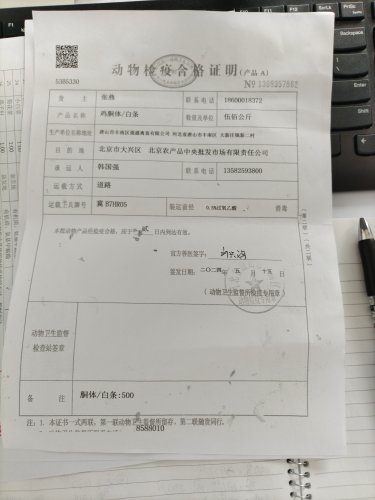 5388330
动物检疫合格证明(产品 A)
货 主 张燕 联系电话 18600018372
产品名称 鸡胴体/白条 数量及单位 伍佰公斤
生产单位名称地址
目的地 北京市大兴区 北京农产品中央批发市场有限责任公司
承运人 韩国强 联系电话 13582593800
运载方式 道路
运载工具牌号 冀B78R05 装运前经 0.5%过氧乙酸 消毒
本批动物产品经检疫合格,应于 日内到达有效。
官方兽医签字:
签发日期:二〇二四年 五月 十五日
(动物卫生监督所检疫专用章)
动物卫生监督
检查站签章
备 注 胴体/白条:500
注:1. 本证书一式两联,第一联动物卫生监督所留存,第二联随货同行。
8588010